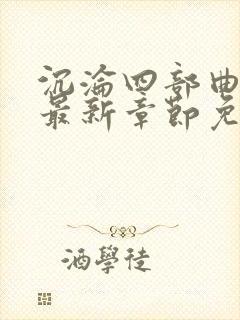 沉淪四部曲
最新章節免
酒學徒